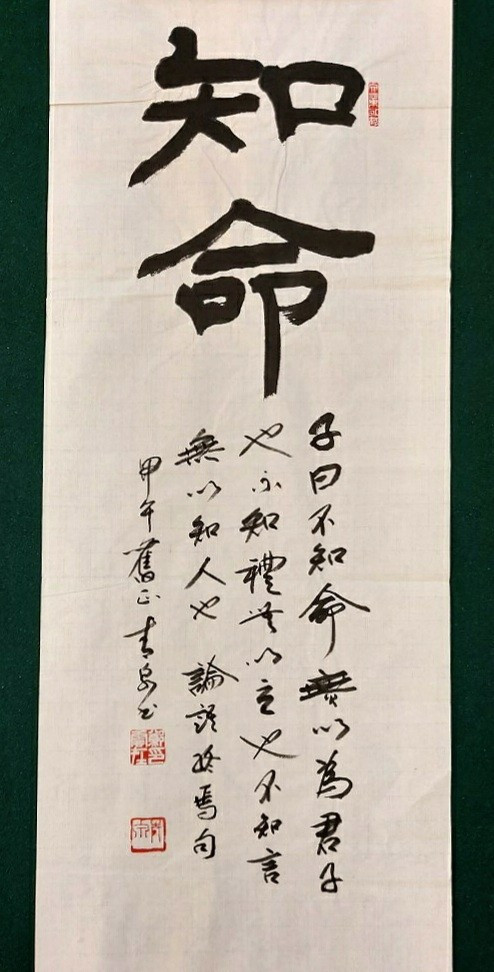 知命
子曰不知命無以為君子
也不知禮無以立也不知言
無以知人也 論語終焉句
甲午舊正青泉書